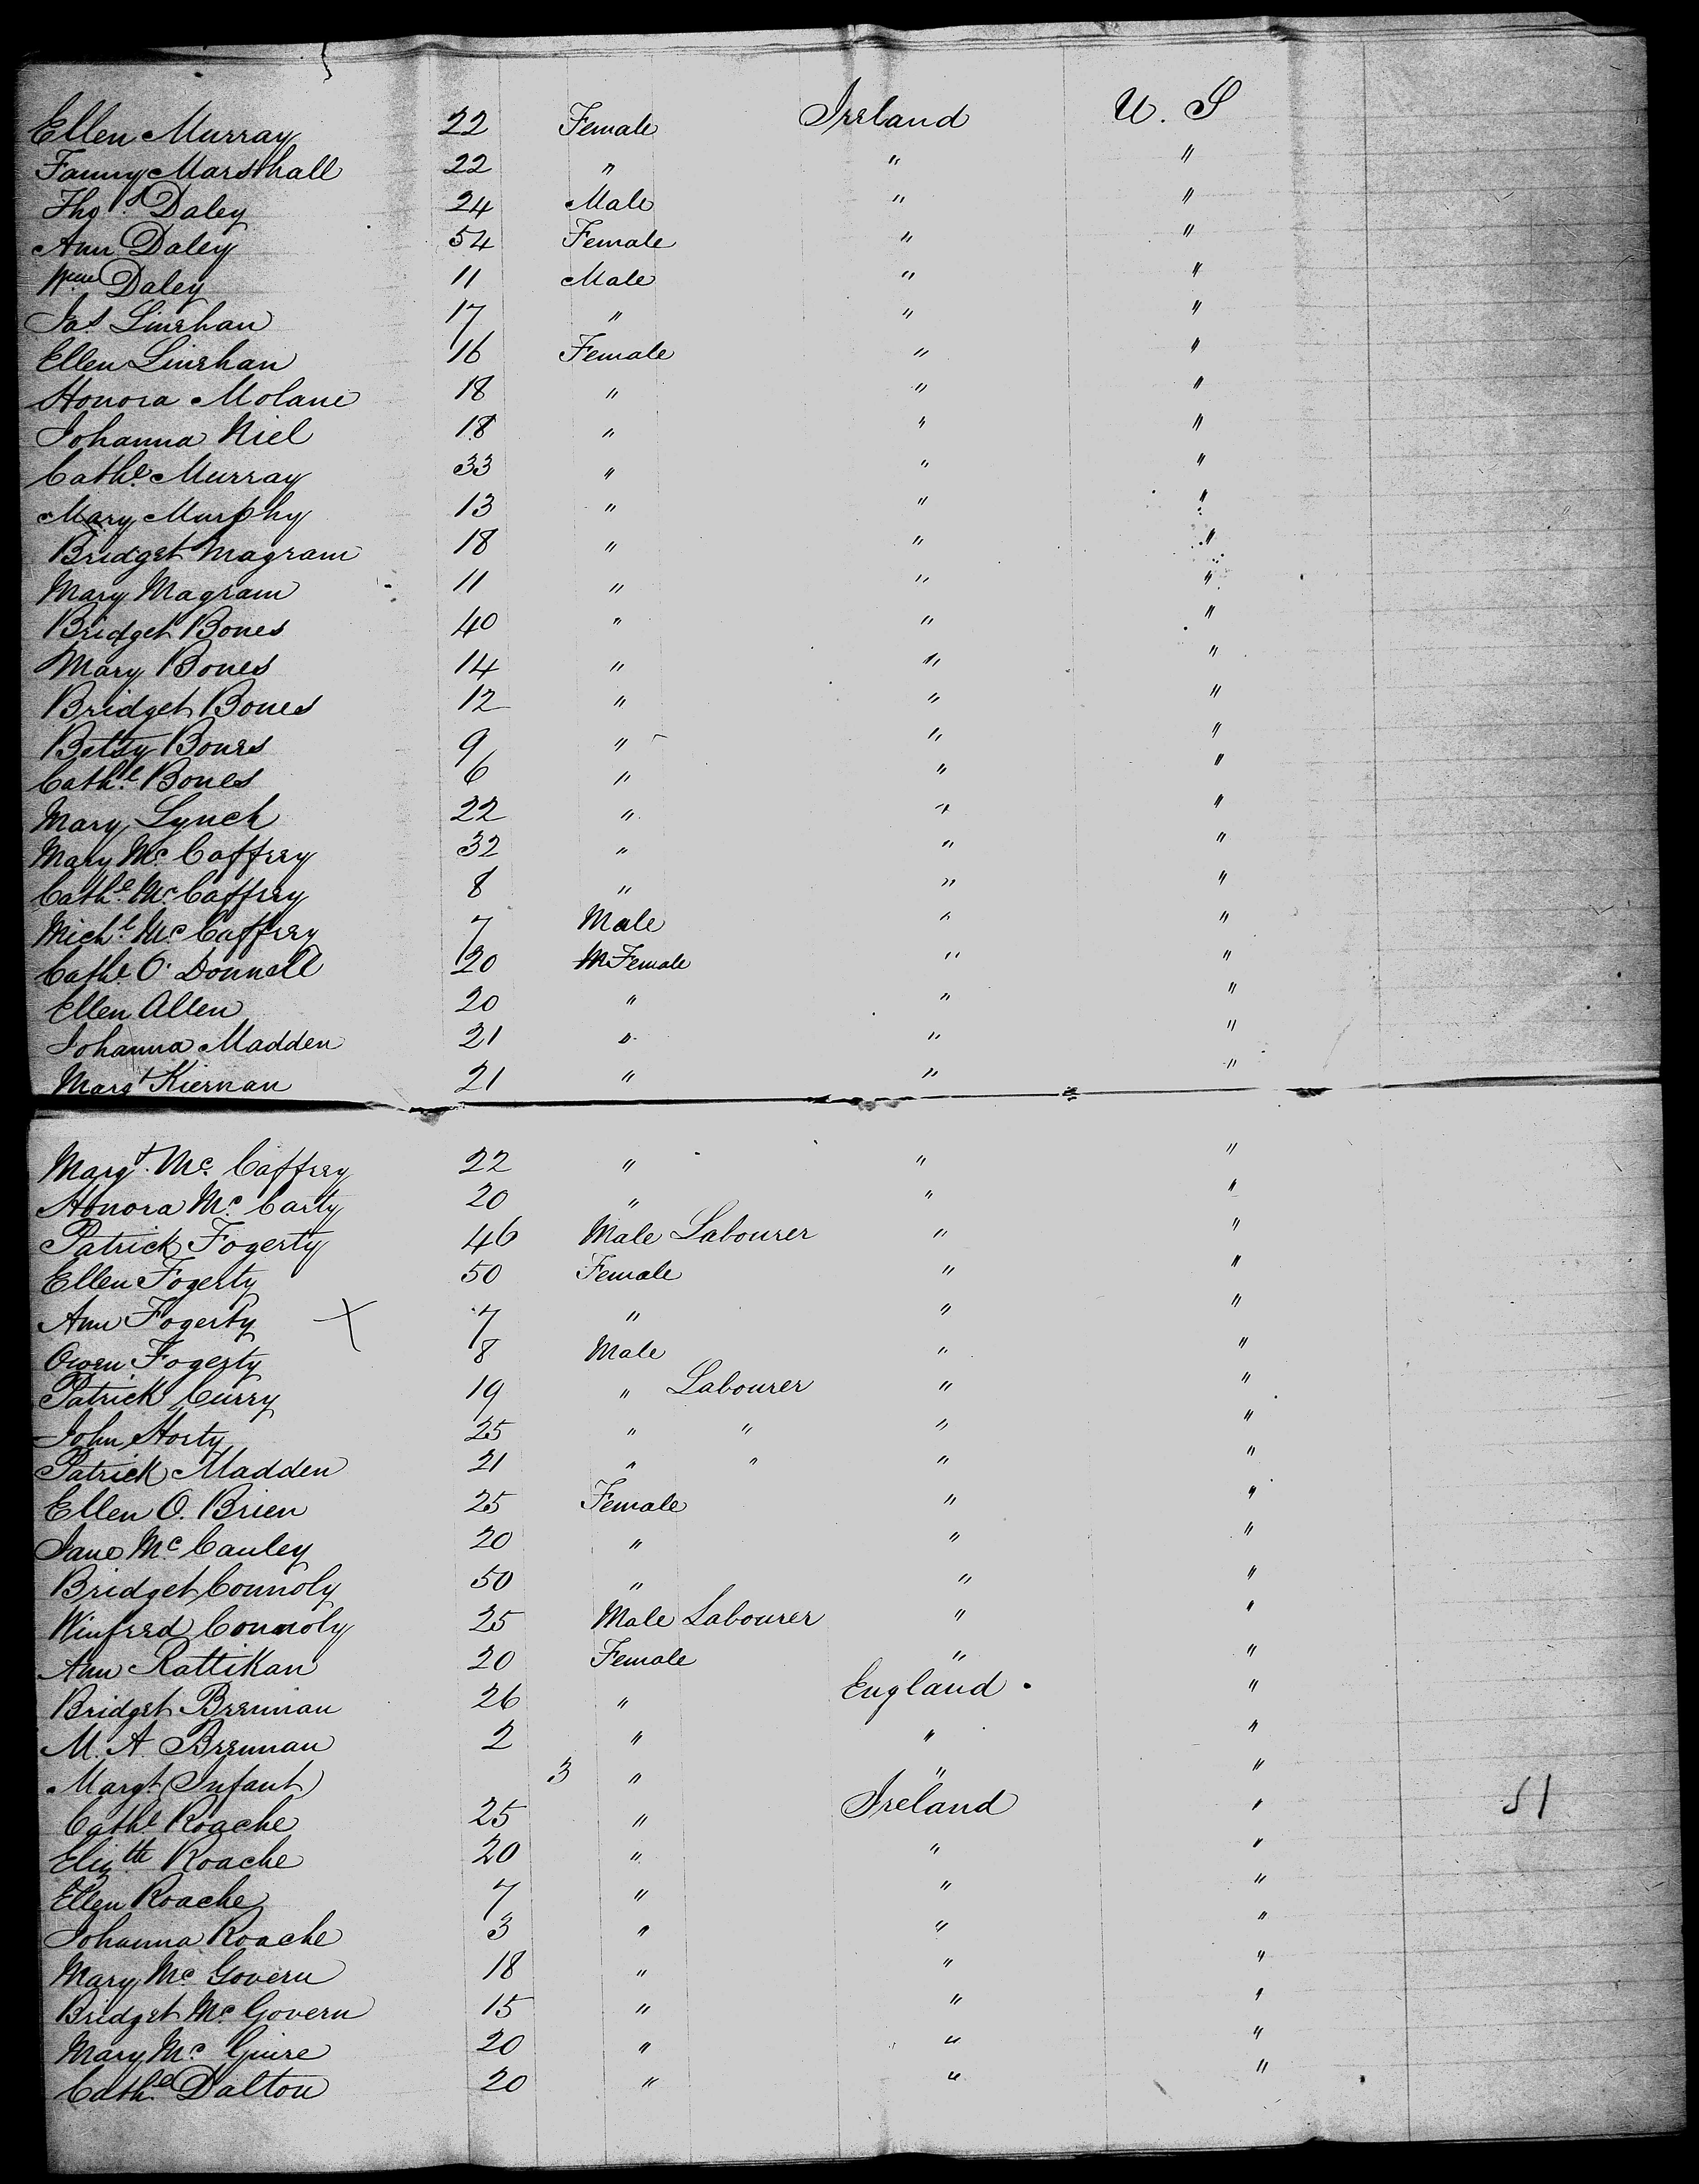 Ellen Murray 22 Female Ireland U. S
Fanny Marshall 22 " " "
Thos. Daley 24 Male " "
Ann Daley 54 Female " "
Wm Daley 11 Male " "
Jas Linehan 17 " " "
Ellen Linehan 16 Female " "
Honora Molane 18 " " "
Johanna Niel 18 " " "
Cathe. Murray 33 " " "
Mary Murphy 13 " " "
Bridget Magram 18 " " "
Mary Magram 11 " " "
Bridget Bones 40 " " "
Mary Bones 14 " " "
Bridget Bones 12 " " "
Betsy Bones 9 " " "
Cathe. Bones 6 " " "
Mary Lynch 22 " " "
Mary Mc. Caffrey 32 " " "
Cathe. Mc. Caffrey 8 " " "
Michl. Mc. Caffrey 7 Male " "
Cathe. O. Donnell 20 Female " "
Ellen Allen 20 " " "
Johanna Madden 21 " " "
Margt Kiernan 21 " " "
Margt. Mc. Caffrey 22 " " "
Honora Mc. Carty 20 " " "
Patrick Fogerty 46 Male Labourer " "
Ellen Fogerty 50 Female " "
Ann Fogerty X 7 " " "
Owen Fogerty 8 Male " "
Patrick Curry 19 " Labourer " "
John Horty 25 " " " "
Patrick Madden 21 " " " "
Ellen O. Brien 25 Female " "
Jane Mc Cauley 20 " " "
Bridget Connoly 50 " " "
Winfred Connoly 25 Male Labourer " "
Ann Rattikan 20 Female " "
Bridget Brennan 26 " England "
M. A. Brennan 2 " " "
Margt. (Infant) 3 " " "
Cathe Roache 25 " Ireland " 51
Elizth Roache 20 " " "
Ellen Roache 7 " " "
Johanna Roache 3 " " "
Mary Mc. Govern 18 " " "
Bridget Mc. Govern 15 " " "
Mary Mc. Guire 20 " " "
Cathe. Dalton 20 " " "